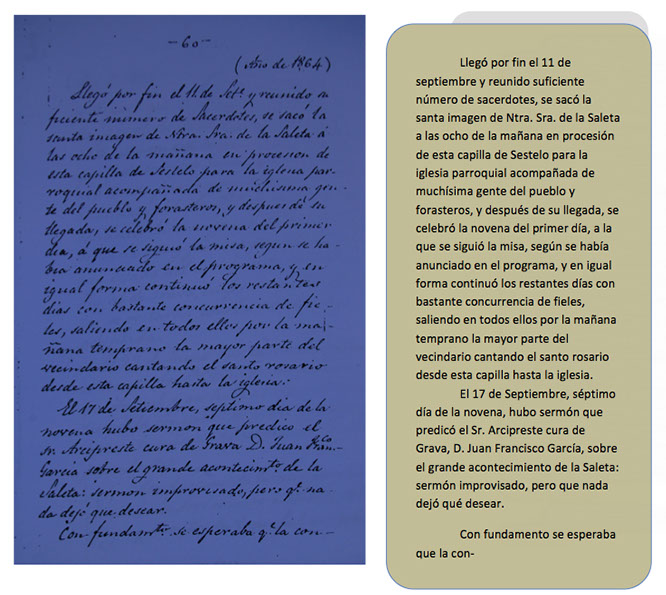 -60-
(Año de 1864)
Llegó por fin el 11 de Set.e y reunido su
ficiente número de Sacerdotes, se sacó la
santa imagen de Ntra. Sra. de la Saleta á
las ocho de la mañana en procesion de
esta capilla de Sestelo para la iglesia par-
roquial acompañada de muchisima gen-
te del pueblo y forasteros, y despues de su
llegada, se celebró la novena del primer
dia, á que se siguió la misa, segun se ha-
bia anunciado en el programa, y en
igual forma continuó los restantes
dias con bastante concurrencia de fie-
les, saliendo en todos ellos por la ma-
ñana temprano la mayor parte del
vecindario cantando el santo rosario
desde esta capilla hasta la iglesia:
El 17 de Setiembre, septimo dia de la
novena hubo sermon que predicó el
sr. Arcipreste cura de Grava D. Juan Fran.co
Garcia sobre el grande acontecim.to de la
Saleta: sermon improvisado, pero q.e na-
da dejó que desear.
Con fundam.to se esperaba q.e la con-
Llegó por fin el 11 de
septiembre y reunido suficiente
número de sacerdotes, se sacó la
santa imagen de Ntra. Sra. de la Saleta
a las ocho de la mañana en procesión
de esta capilla de Sestelo para la
iglesia parroquial acompañada de
muchísima gente del pueblo y
forasteros, y después de su llegada, se
celebró la novena del primer día, a la
que se siguió la misa, según se había
anunciado en el programa, y en igual
forma continuó los restantes días con
bastante concurrencia de fieles,
saliendo en todos ellos por la mañana
temprano la mayor parte del
vecindario cantando el santo rosario
desde esta capilla hasta la iglesia.
El 17 de Septiembre, séptimo
día de la novena, hubo sermón que
predicó el Sr. Arcipreste cura de
Grava, D. Juan Francisco García, sobre
el grande acontecimiento de la Saleta:
sermón improvisado, pero que nada
dejó qué desear.
Con fundamento se esperaba
que la con-